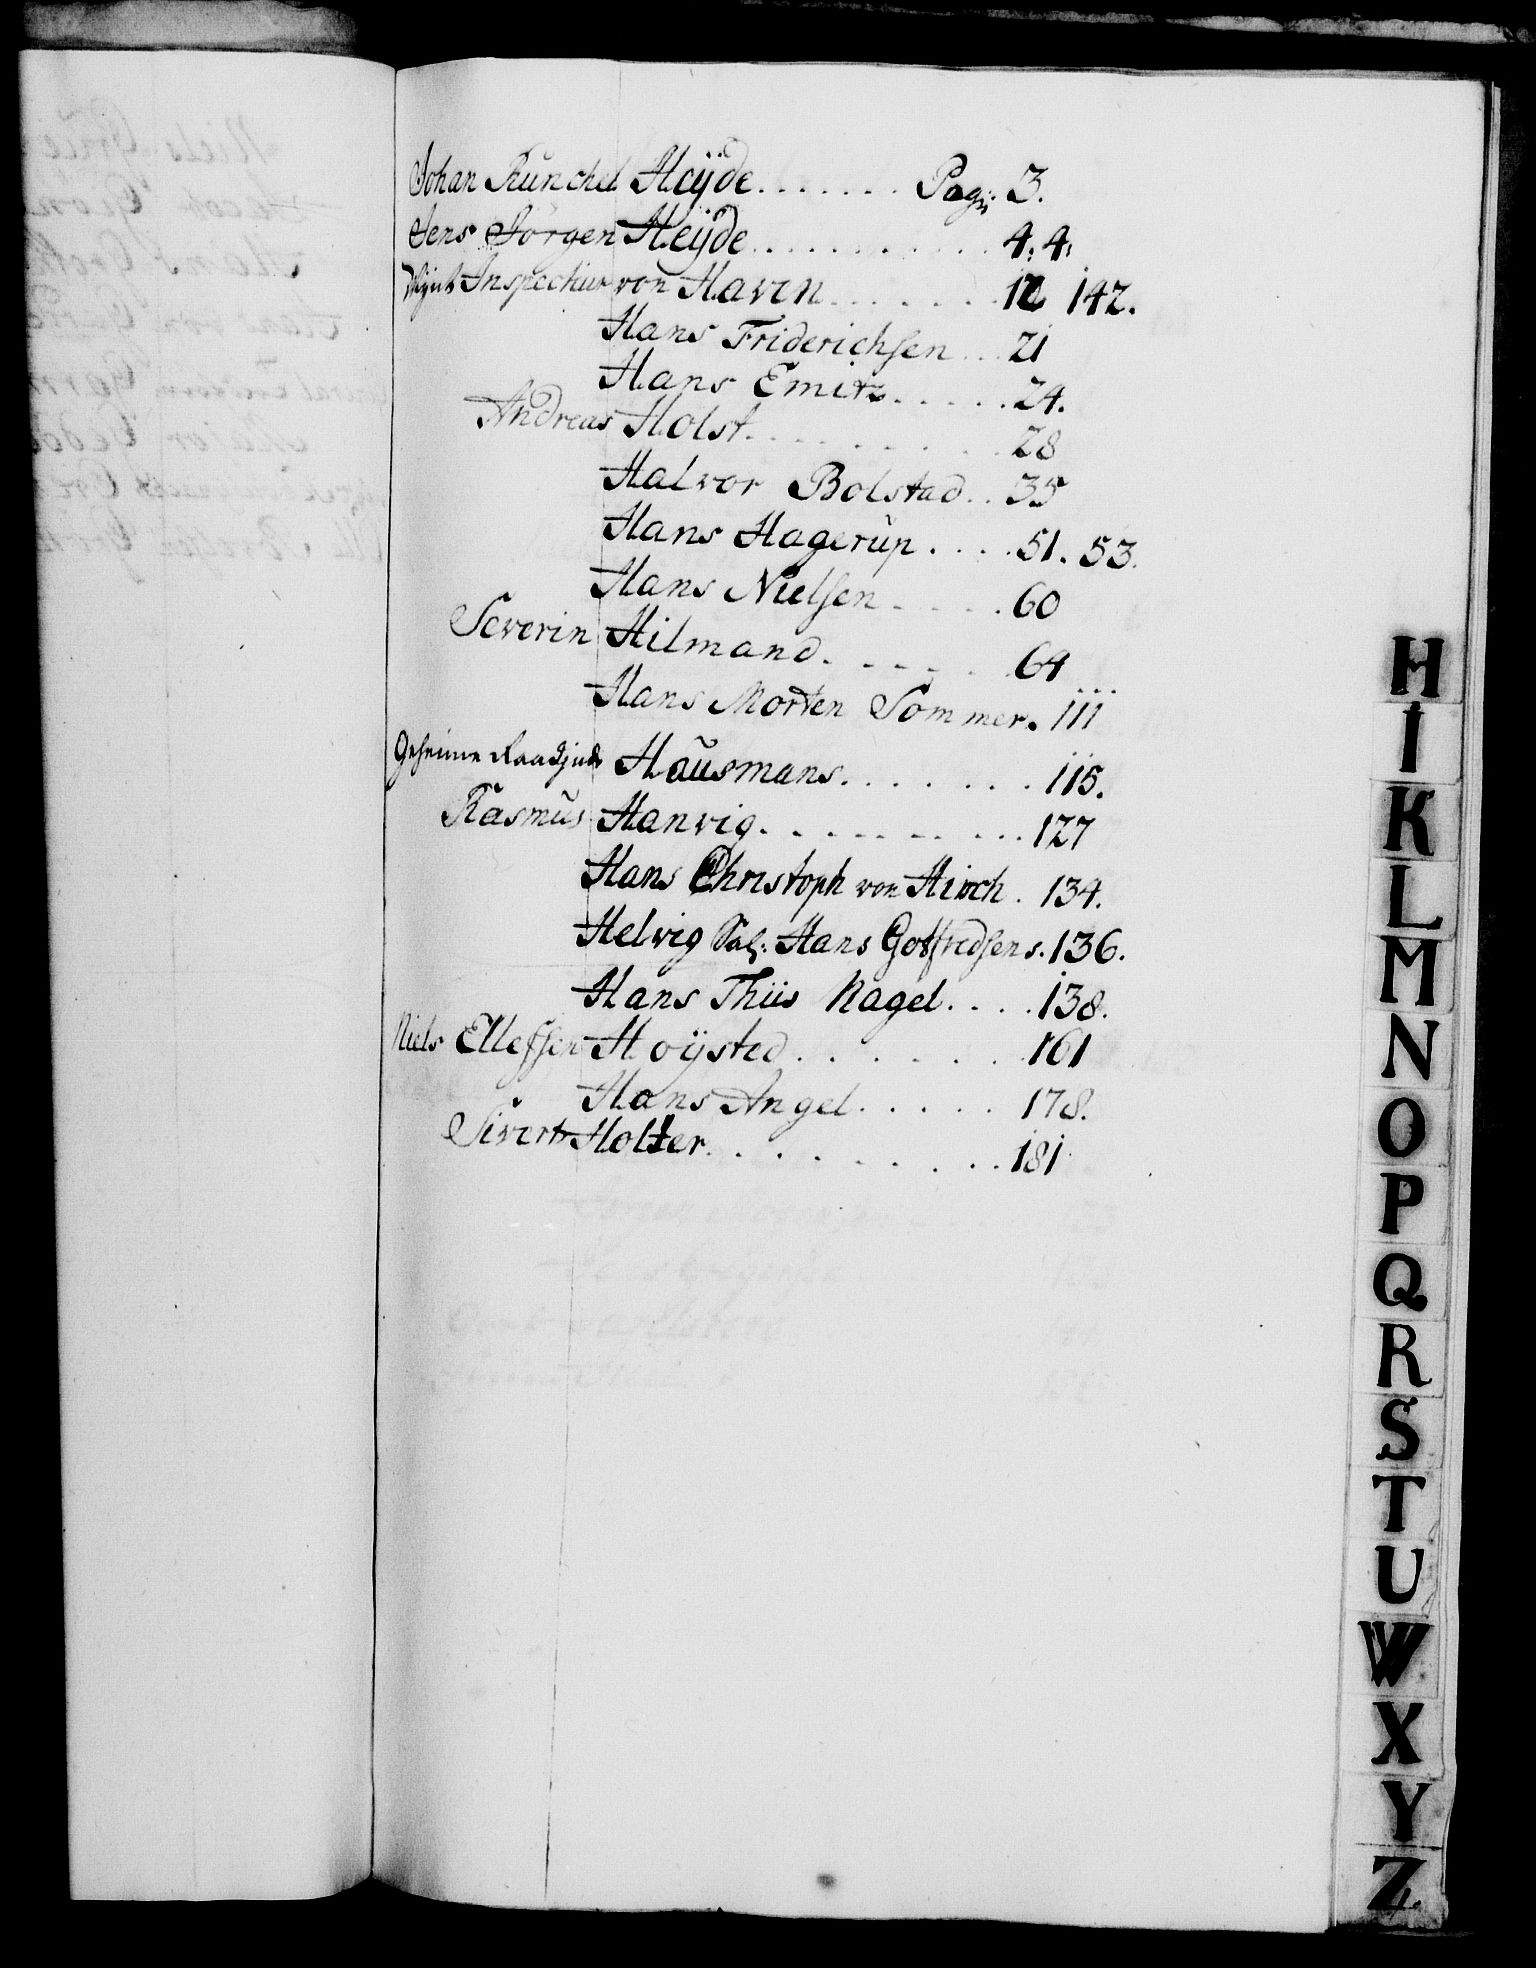 Johan Runchel Heÿde....... Pag: 3.
Jens Jörgen Heÿde............ 4. 4.
Inspecteur von Haven....... 12 142.
Hans Friderichsen... 21
Hans Emitz...... 24.
Andreas Holst......... 28
Halvor Bolstad.. 35
Hans Hagerup.... 51. 53.
Hans Nielsen..... 60
Severin Hilmand...... 64
Hans Morten Sommer. 111
Geheime Raadjnde Hausmans....... 115.
Rasmus Hanvig.......... 127
Hans Christoph von Hirsch. 134.
Helvig Sal: Hans Gotfredsens. 136.
Hans Thiis Nagel.... 138.
Niels Ellefsen Hoÿsted....... 161
Hans Angel..... 178.
Sivert Holter......... 181
H
I
K
L
M
N
O
P
Q
R
S
T
U
W
X
Y
Z